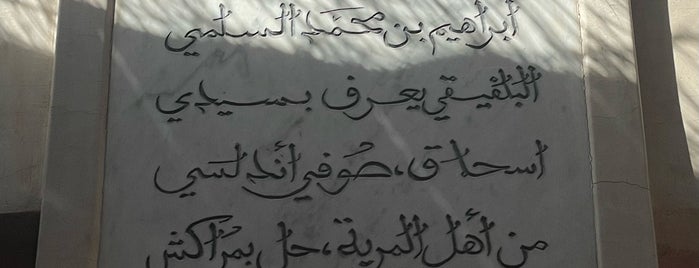 أبراهيم بن محمد السلمي
البلفيقي يعرف بسيدي
اسحاق، صُوفي أندلسي
من أهل المرية، حل بمُراكش